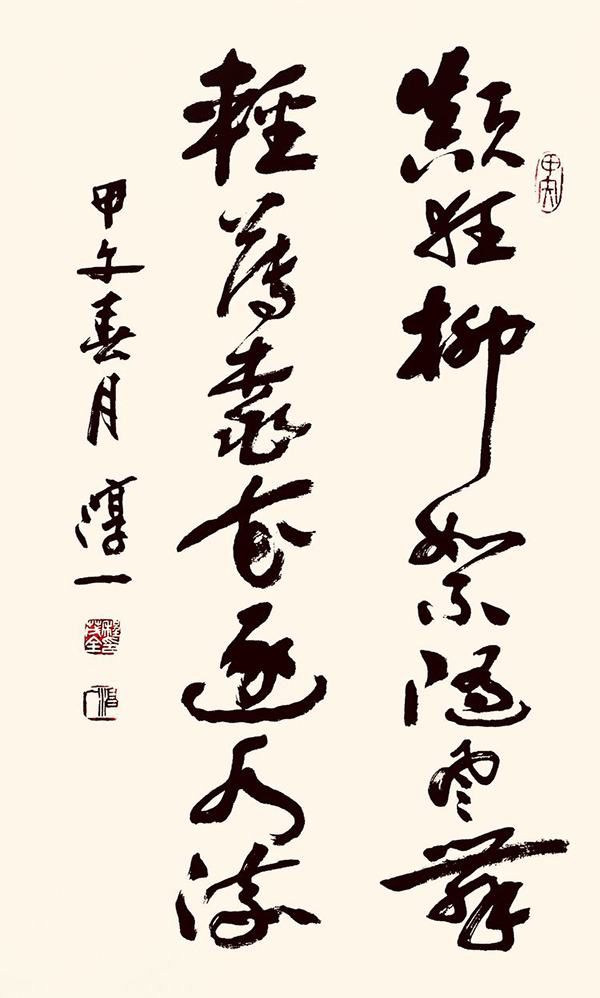 顛狂柳絮隨風舞
輕薄桃花逐水流
甲午春月 淳一